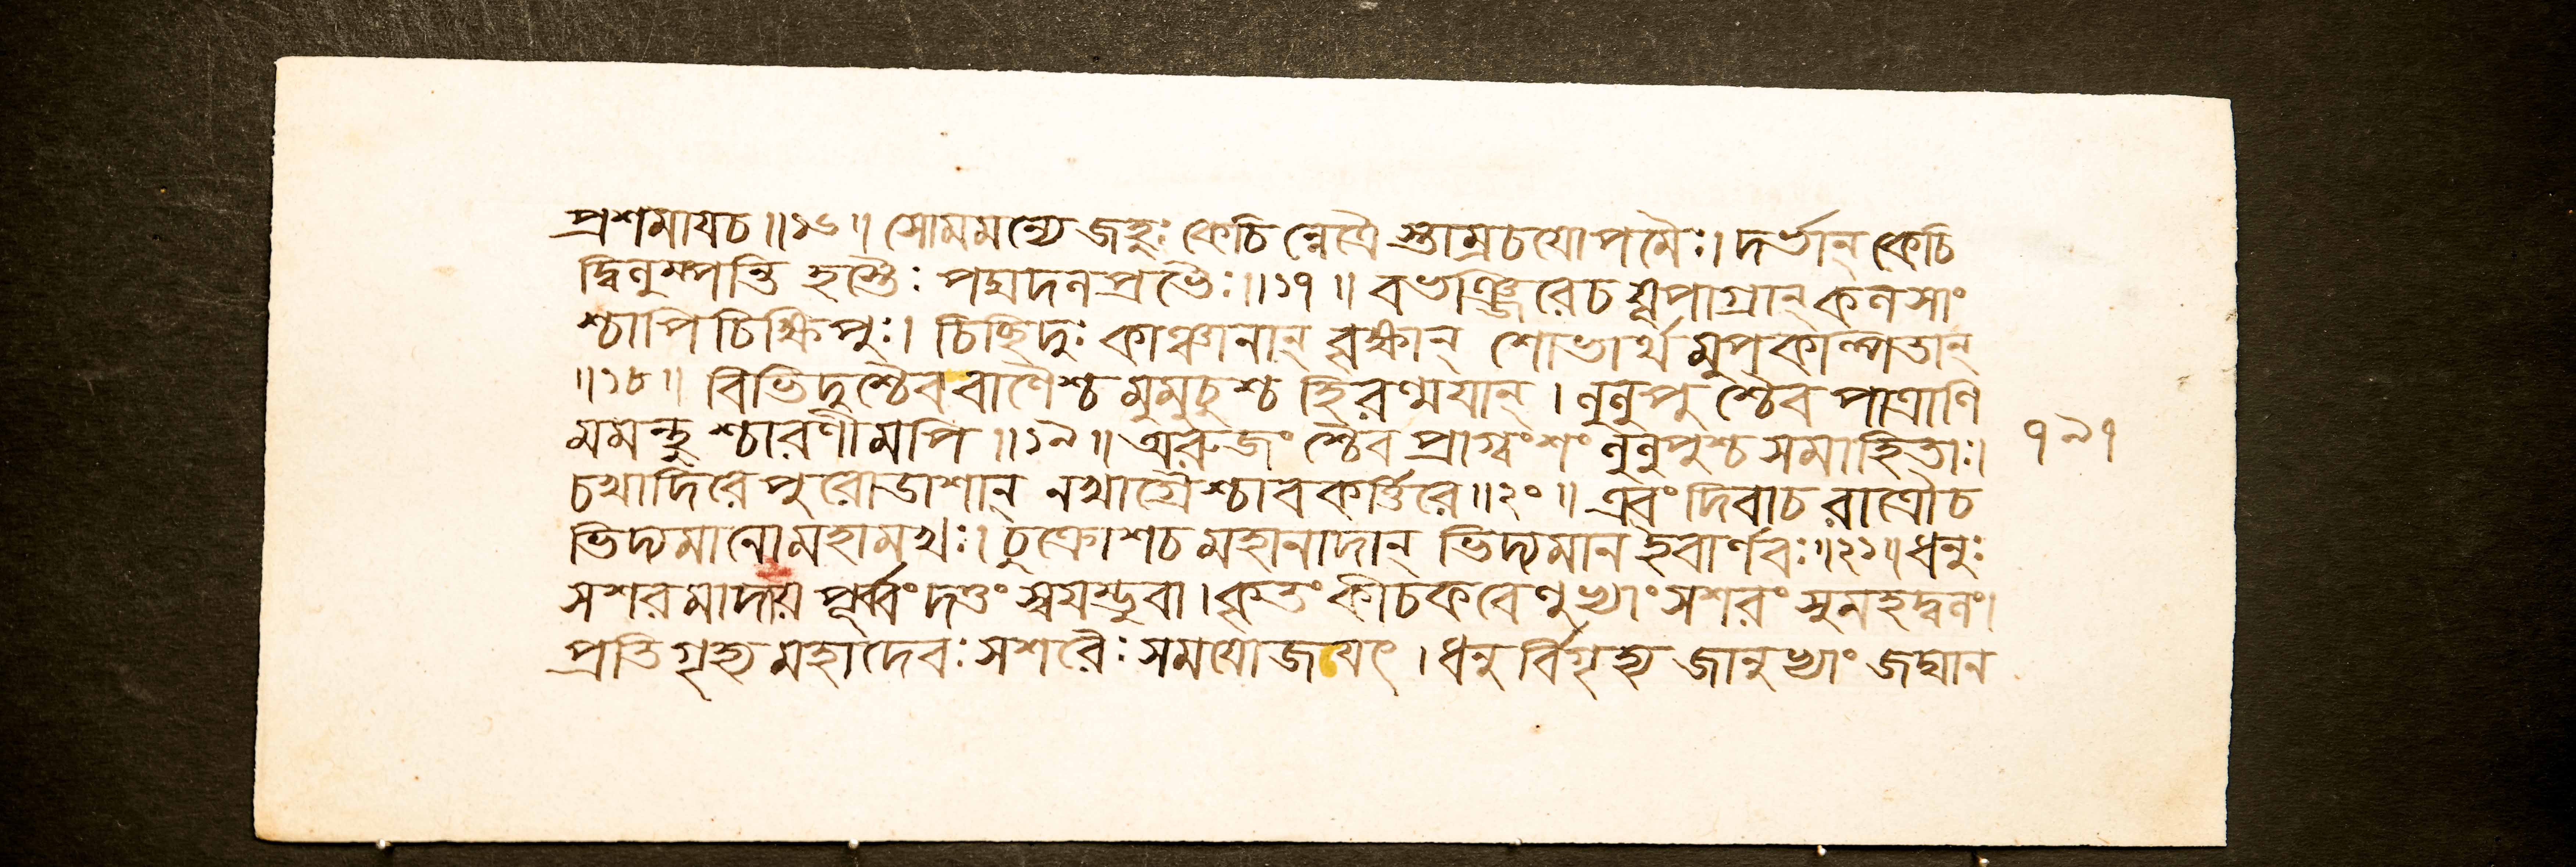 প্রশমাযচ॥১৬॥ সোমমন্যে জহ্রুঃ কেচিন্নেত্রৈস্তাম্রচযোপমৈঃ। দর্ভান্ কেচি
দ্বিনুম্পন্তি হস্তৈঃ পদ্মদনপ্রভৈঃ॥১৭॥ বভঞ্জিরেচ যূপাগ্রান্ কনসাং
শ্চাপি চিক্ষিপুঃ। চিচ্ছিদুঃ কাঞ্চানান্ বৃক্ষান্ শোভার্থমুপকাল্পতান্
॥১৮॥ বিভিদুশ্চৈব বাণৈশ্চ মুমুচুশ্চ হিরণ্ময়ান্। নুনুপুশ্চৈব পাত্রাণি
মমন্থুশ্চারণীমপি॥১৯॥ অরুজংশ্চৈব প্রাগ্বংশং নুনুপুশ্চ সমাহিতাঃ। ৭৯৭
চখাদিরে পুরোডাশান্ নখাগ্রৈশ্চাবকর্ত্তিরে॥২০॥ এবং দিবাচ রাত্রৌচ
ভিদ্যমানো মহামখঃ। চুক্রোশচ মহানাদান্ ভিদ্যমান ইবার্ণবঃ॥২১॥ ধনুঃ
সশরমাদায় পূর্ব্বং দত্তং স্বযম্ভুবা। কৃতং কীচকবেণুভ্যাং সশরং সুমহদ্বনং।
প্রতিগৃহ্য মহাদেবঃ সশরৈঃ সমযোজযেৎ। ধনুর্বিগৃহ্য জানুভ্যাং জঘান